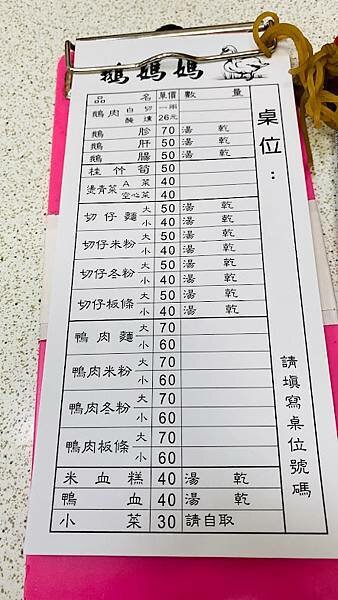 鵝媽媽
品名 單價 數量
鵝肉 白切 醃燻 一兩 26元
鵝胗 70 湯 乾
鵝肝 50 湯 乾
鵝腸 50 湯 乾
桂竹筍 50
燙青菜 A菜 40
空心菜 40
切仔麵 大 50 湯 乾
小 40 湯 乾
切仔米粉 大 50 湯 乾
小 40 湯 乾
切仔冬粉 大 50 湯 乾
小 40 湯 乾
切仔板條 大 50 湯 乾
小 40 湯 乾
鴨肉麵 大 70
小 60
鴨肉米粉 大 70
小 60
鴨肉冬粉 大 70
小 60
鴨肉板條 大 70
小 60
米血糕 40 湯 乾
鴨血 40 湯 乾
小菜 30 請自取
桌位:
請填寫桌位號碼